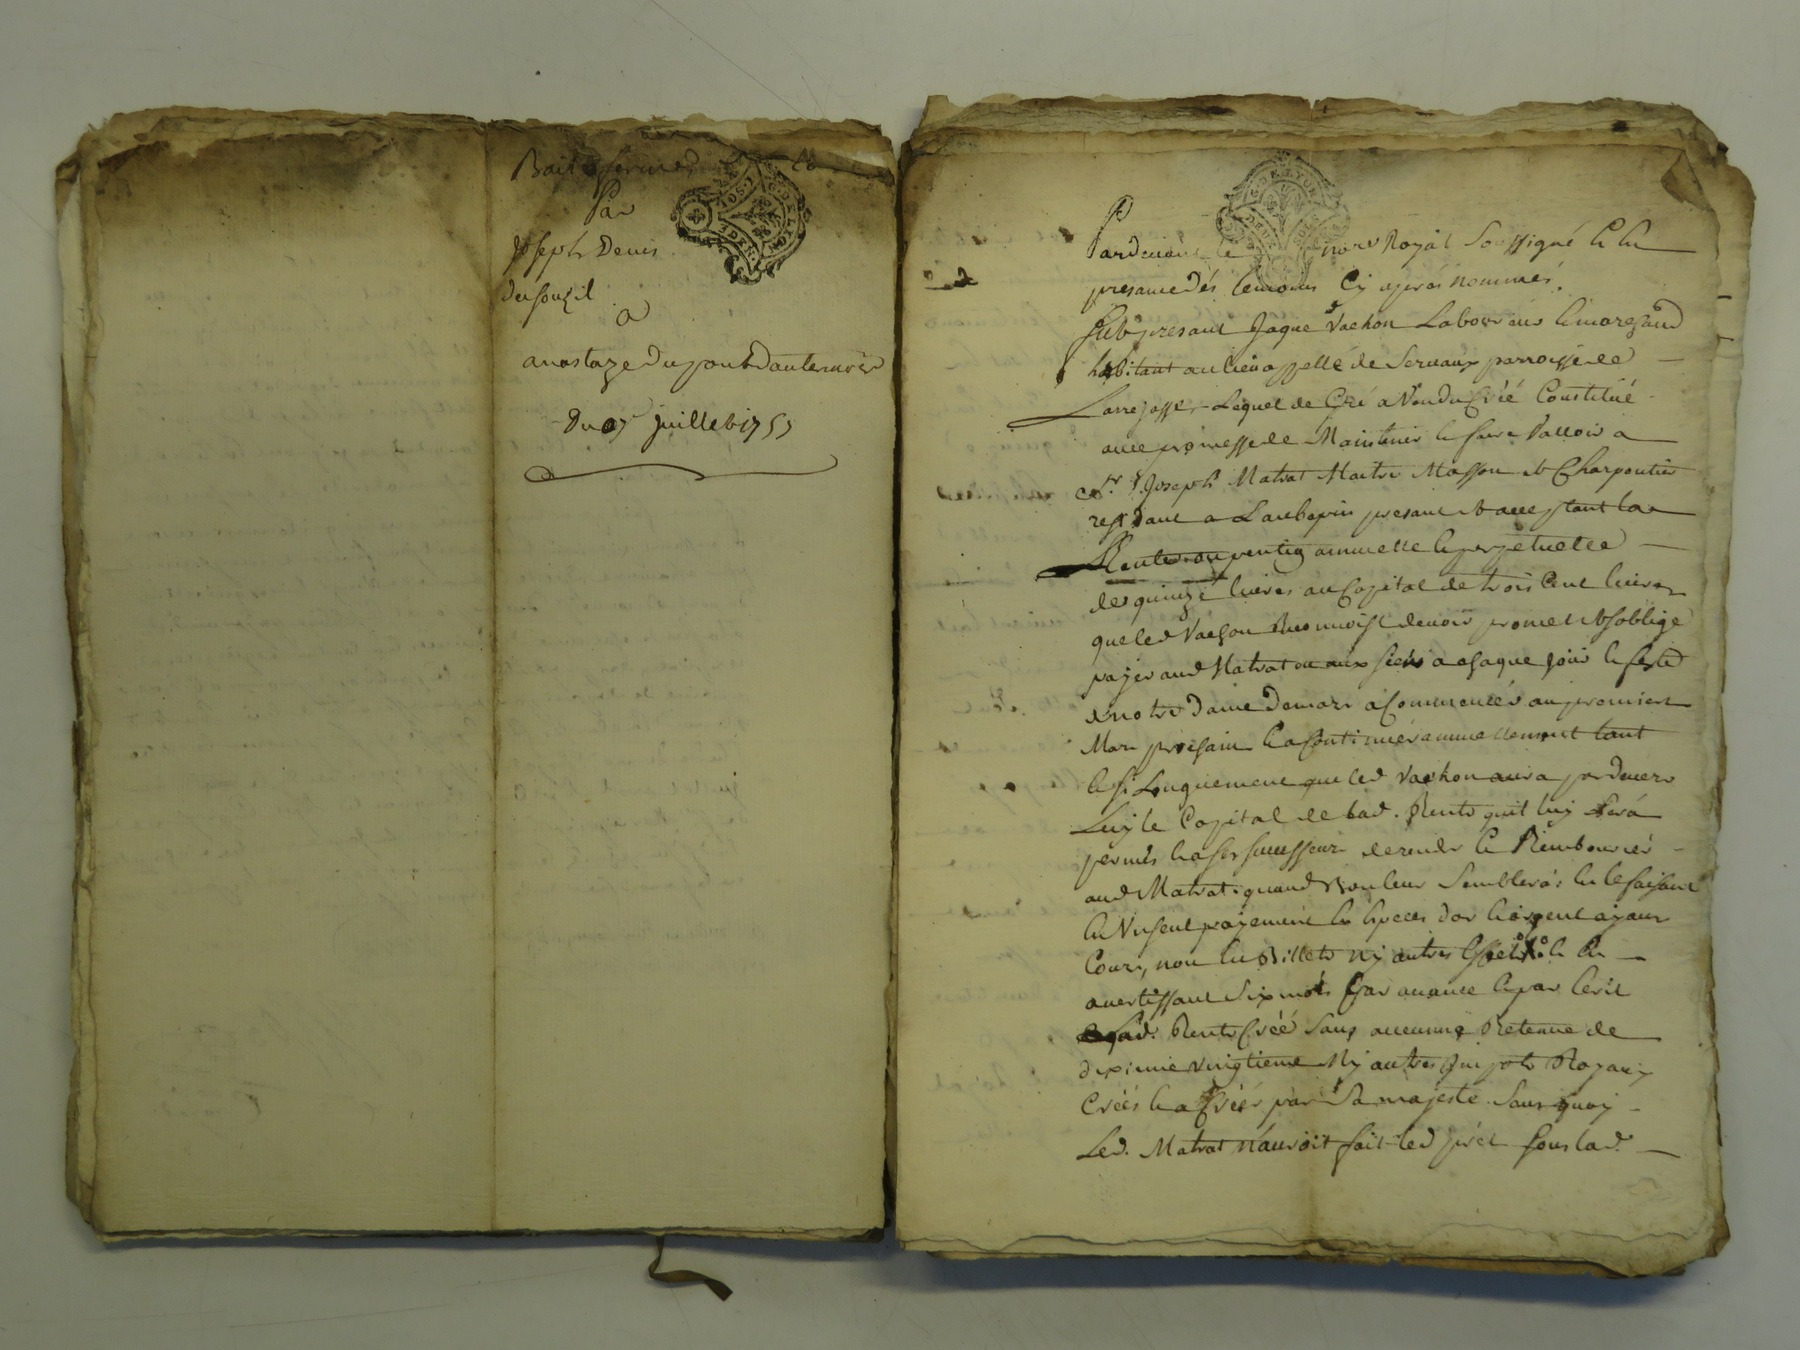 Bail a ferme
Par
Joseph Denis
du fouzil
a
anastaze Dupont dantenai
Du 27 juillet 1755
Pardevant le notre Royal Soussigné & en
presance dés temoins Cy aprés nommés.
fut presant Jaque Vachon Laboureur & marchand
habitant au lieu appellé de Servaux parroisse de
Larrejasse, Lequel de Gré a Vendu Créé Constitué
avec promesse de Maintenir & faire Valloir a
Sr. Joseph Matrat Maitre Masson & Charpentier
residant a Laubepin presant & acceptant la
Rente ou pention annuelle & perpetuelle
de quinze livres au Capital de trois Cent livres
que led Vachon Reconnoist devoir promet & soblige
payer aud Matrat ou aux siens a chaque jour & feste
de notre Dame de mars a Commencer au premier
Mars prochain & a Continuer annuellement tant
& si Longuement que led Vachon aura par devers
Luy le Capital de lad. Rente quil luy sera
permis & a ses successeurs de rendre & Rembourcer
aud Matrat. quand bon leur Semblera: en le faisant
en Un seul payement en Especes dor & argent ayant
Cours, non en Billets ny autres Effets & en
avertissant Six mois par avance & par Ecrit
lad. Rente Créé Sans aucunne Retenue de
dixieme vingtieme Ny autres Impots Royaux
Créés & a Créér par Sa majesté. Sans quoy
Led. Matrat n'auroit fait led prét sous lad.